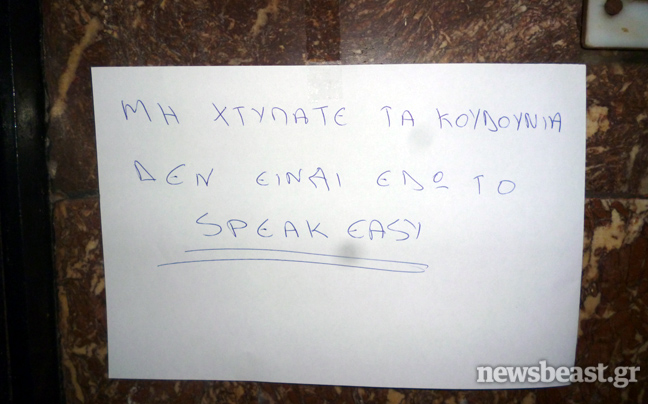 ΜΗ ΧΤΥΠΑΤΕ ΤΑ ΚΟΥΔΟΥΝΙΑ
ΔΕΝ ΕΙΝΑΙ ΕΔΩ ΤΟ
SPEAK EASY
newsbeast.gr